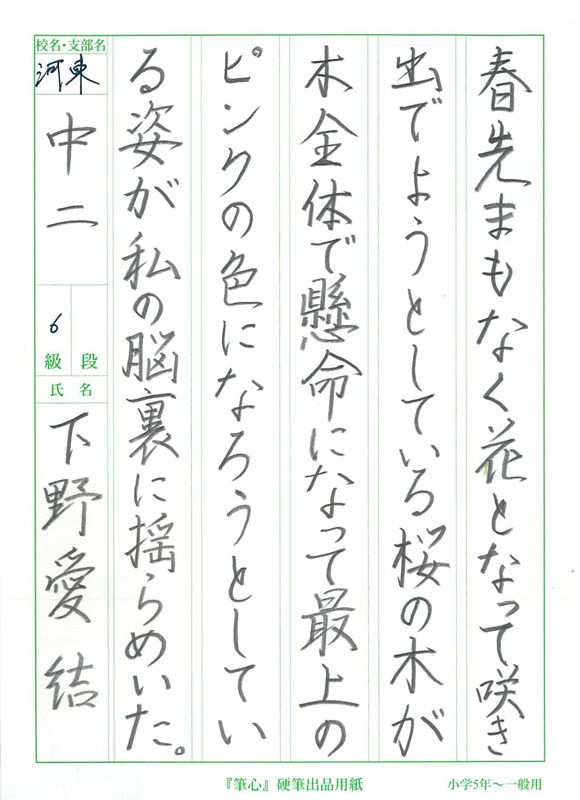 春先まもなく花となって咲き
出でようとしている桜の木が
木全体で懸命になって最上の
ピンクの色になろうとしてい
る姿が私の脳裏に揺らめいた。
校名・支部名
河東
中二
6
級 段
氏 名
下野愛結
『筆心』硬筆出品用紙
小学5年～一般用